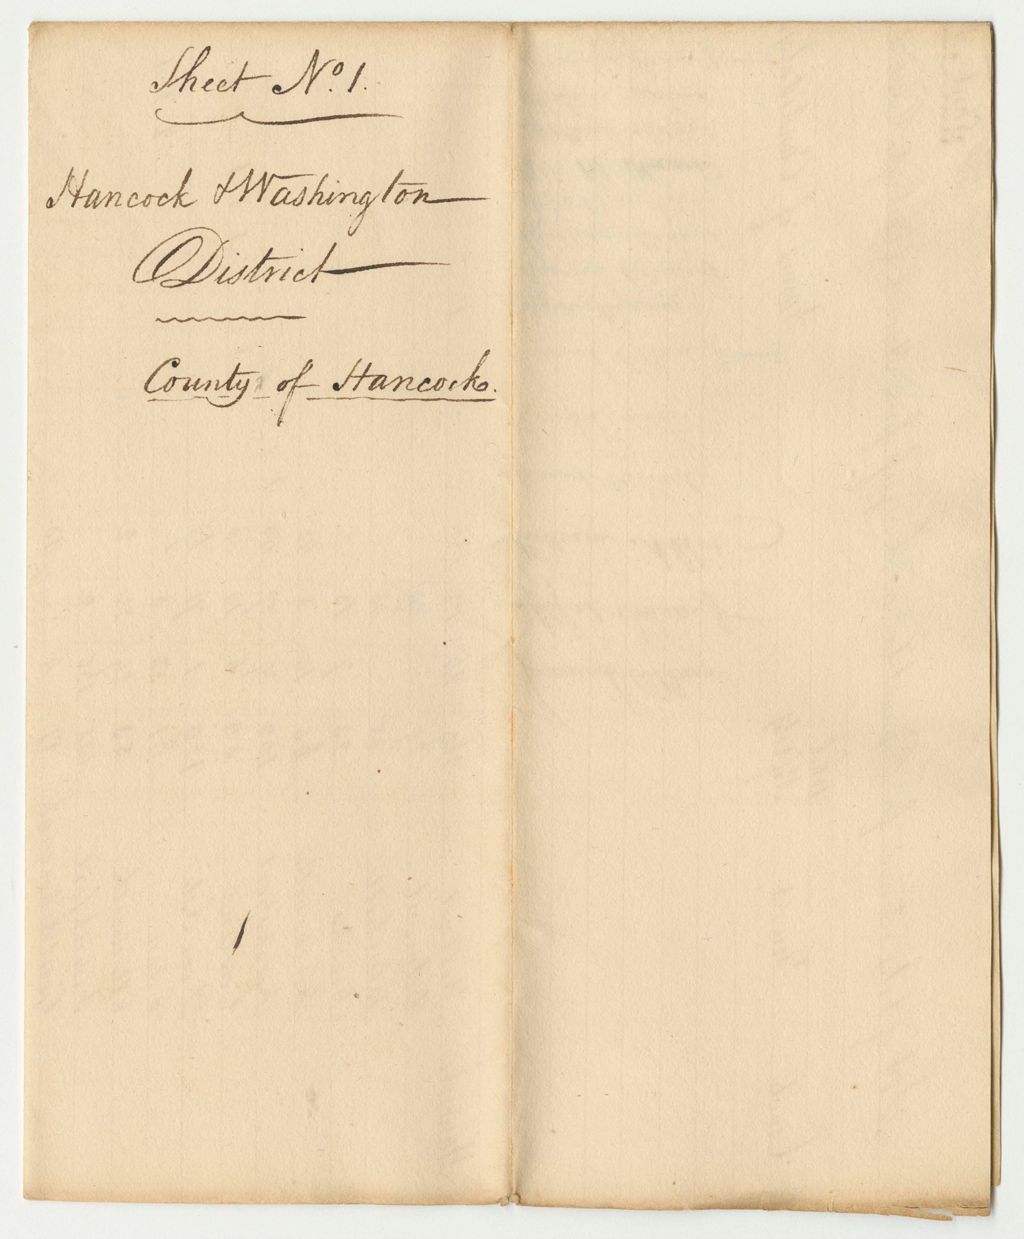 Sheet No. 1.
Hancock & Washington
District
County of Hancock.
1